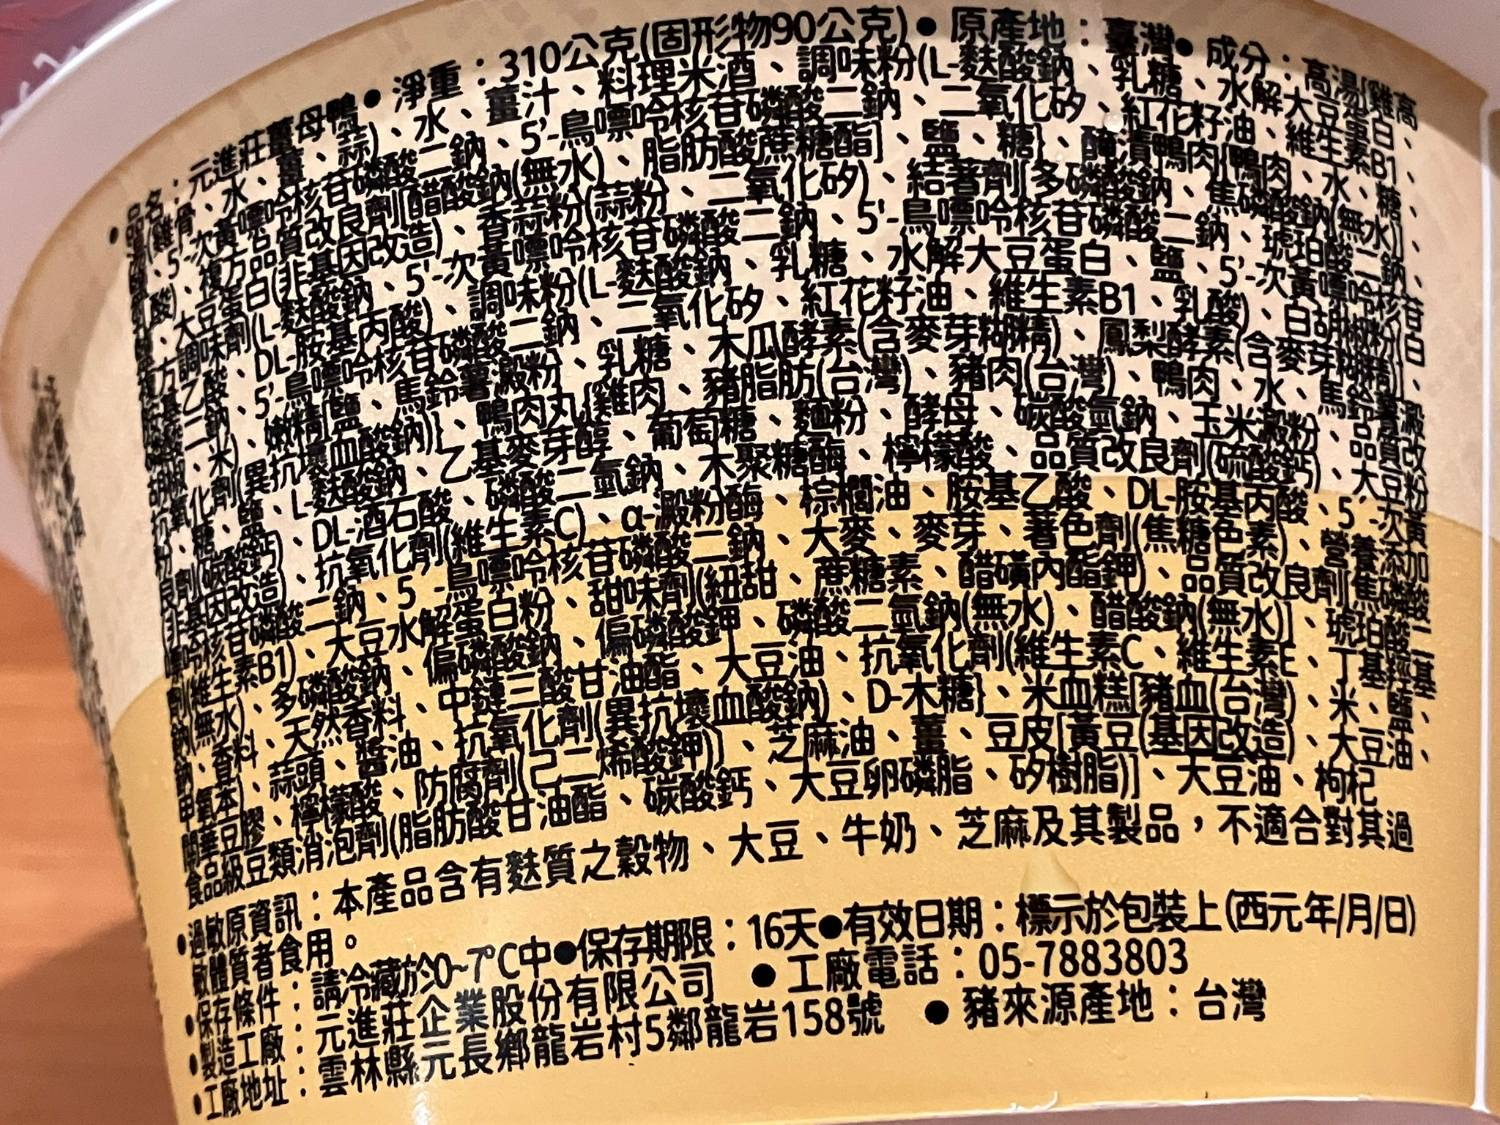 ●品名：元進莊薑母鴨●淨重：310公克(固形物90公克)●原產地：臺灣●成分：高湯[雞高
湯(雞骨、水、薑、蒜)、水、薑汁、料理米酒、調味粉(L-麩酸鈉、乳糖、水解大豆蛋白、
5'-次黃嘌呤核苷磷酸二鈉、5'-鳥嘌呤核苷磷酸二鈉、二氧化矽、紅花籽油、維生素B1、
品質改良劑[醋酸鈉(無水)、脂肪酸蔗糖酯]、鹽、糖}、醃漬鴨肉{鴨肉、水、糖、
大豆蛋白(非基因改造)、香蒜粉(蒜粉、二氧化矽)、結著劑[多磷酸鈉、焦磷酸鈉(無水)]、
調味劑(L-麩酸鈉、5'-次黃嘌呤核苷磷酸二鈉、5'-鳥嘌呤核苷磷酸二鈉、琥珀酸二鈉、
DL-胺基丙酸)、調味粉(L-麩酸鈉、乳糖、水解大豆蛋白、鹽、5'-次黃嘌呤核苷
5'-鳥嘌呤核苷磷酸二鈉、二氧化矽、紅花籽油、維生素B1、乳酸)、白胡椒粉
嫩精[鹽、馬鈴薯澱粉、乳糖、木瓜酵素(含麥芽糊精)、鳳梨酵素(含麥芽糊精)]、
抗氧化劑(異抗壞血酸鈉)}、鴨肉丸{雞肉、豬脂肪(台灣)、豬肉(台灣)、鴨肉、水、馬鈴薯澱
粉、糖、鹽、L-麩酸鈉、乙基麥芽醇、葡萄糖、麵粉、酵母、碳酸氫鈉、玉米澱粉、品質改
良劑(碳酸鈣)、DL-酒石酸、磷酸二氫鈉、木聚糖酶、檸檬酸、品質改良劑(硫酸鈣)、大豆粉
(非基因改造)、抗氧化劑(維生素C)、α-澱粉酶、棕櫚油、胺基乙酸、DL-胺基丙酸、5'-次黃
嘌呤核苷磷酸二鈉、5'-鳥嘌呤核苷磷酸二鈉、大麥、麥芽、著色劑(焦糖色素)、營養添加
劑(維生素B1)、大豆水解蛋白粉、甜味劑(紐甜、蔗糖素、醋磺內酯鉀)、品質改良劑[焦磷酸二
鈉(無水)、多磷酸鈉、偏磷酸鈉、偏磷酸鉀、磷酸二氫鈉(無水)、醋酸鈉(無水)]、琥珀酸二
鈉、香料、天然香料、中鏈三酸甘油酯、大豆油、抗氧化劑(維生素C、維生素E、丁基羥基
甲氧苯)、蒜頭、醬油、抗氧化劑(異抗壞血酸鈉)、D-木糖}、米血糕[豬血(台灣)、米、鹽、
關華豆膠、檸檬酸、防腐劑(己二烯酸鉀)]、芝麻油、薑、豆皮[黃豆(基因改造)、大豆油、
食品級豆類消泡劑(脂肪酸甘油酯、碳酸鈣、大豆卵磷脂、矽樹脂)]、大豆油、枸杞
●過敏原資訊：本產品含有麩質之穀物、大豆、牛奶、芝麻及其製品，不適合對其過
敏體質者食用。
●保存條件：請冷藏於0~7℃中●保存期限：16天●有效日期：標示於包裝上(西元年/月/日)
●製造工廠：元進莊企業股份有限公司 ●工廠電話：05-7883803
●工廠地址：雲林縣元長鄉龍岩村5鄰龍岩158號 ●豬來源產地：台灣